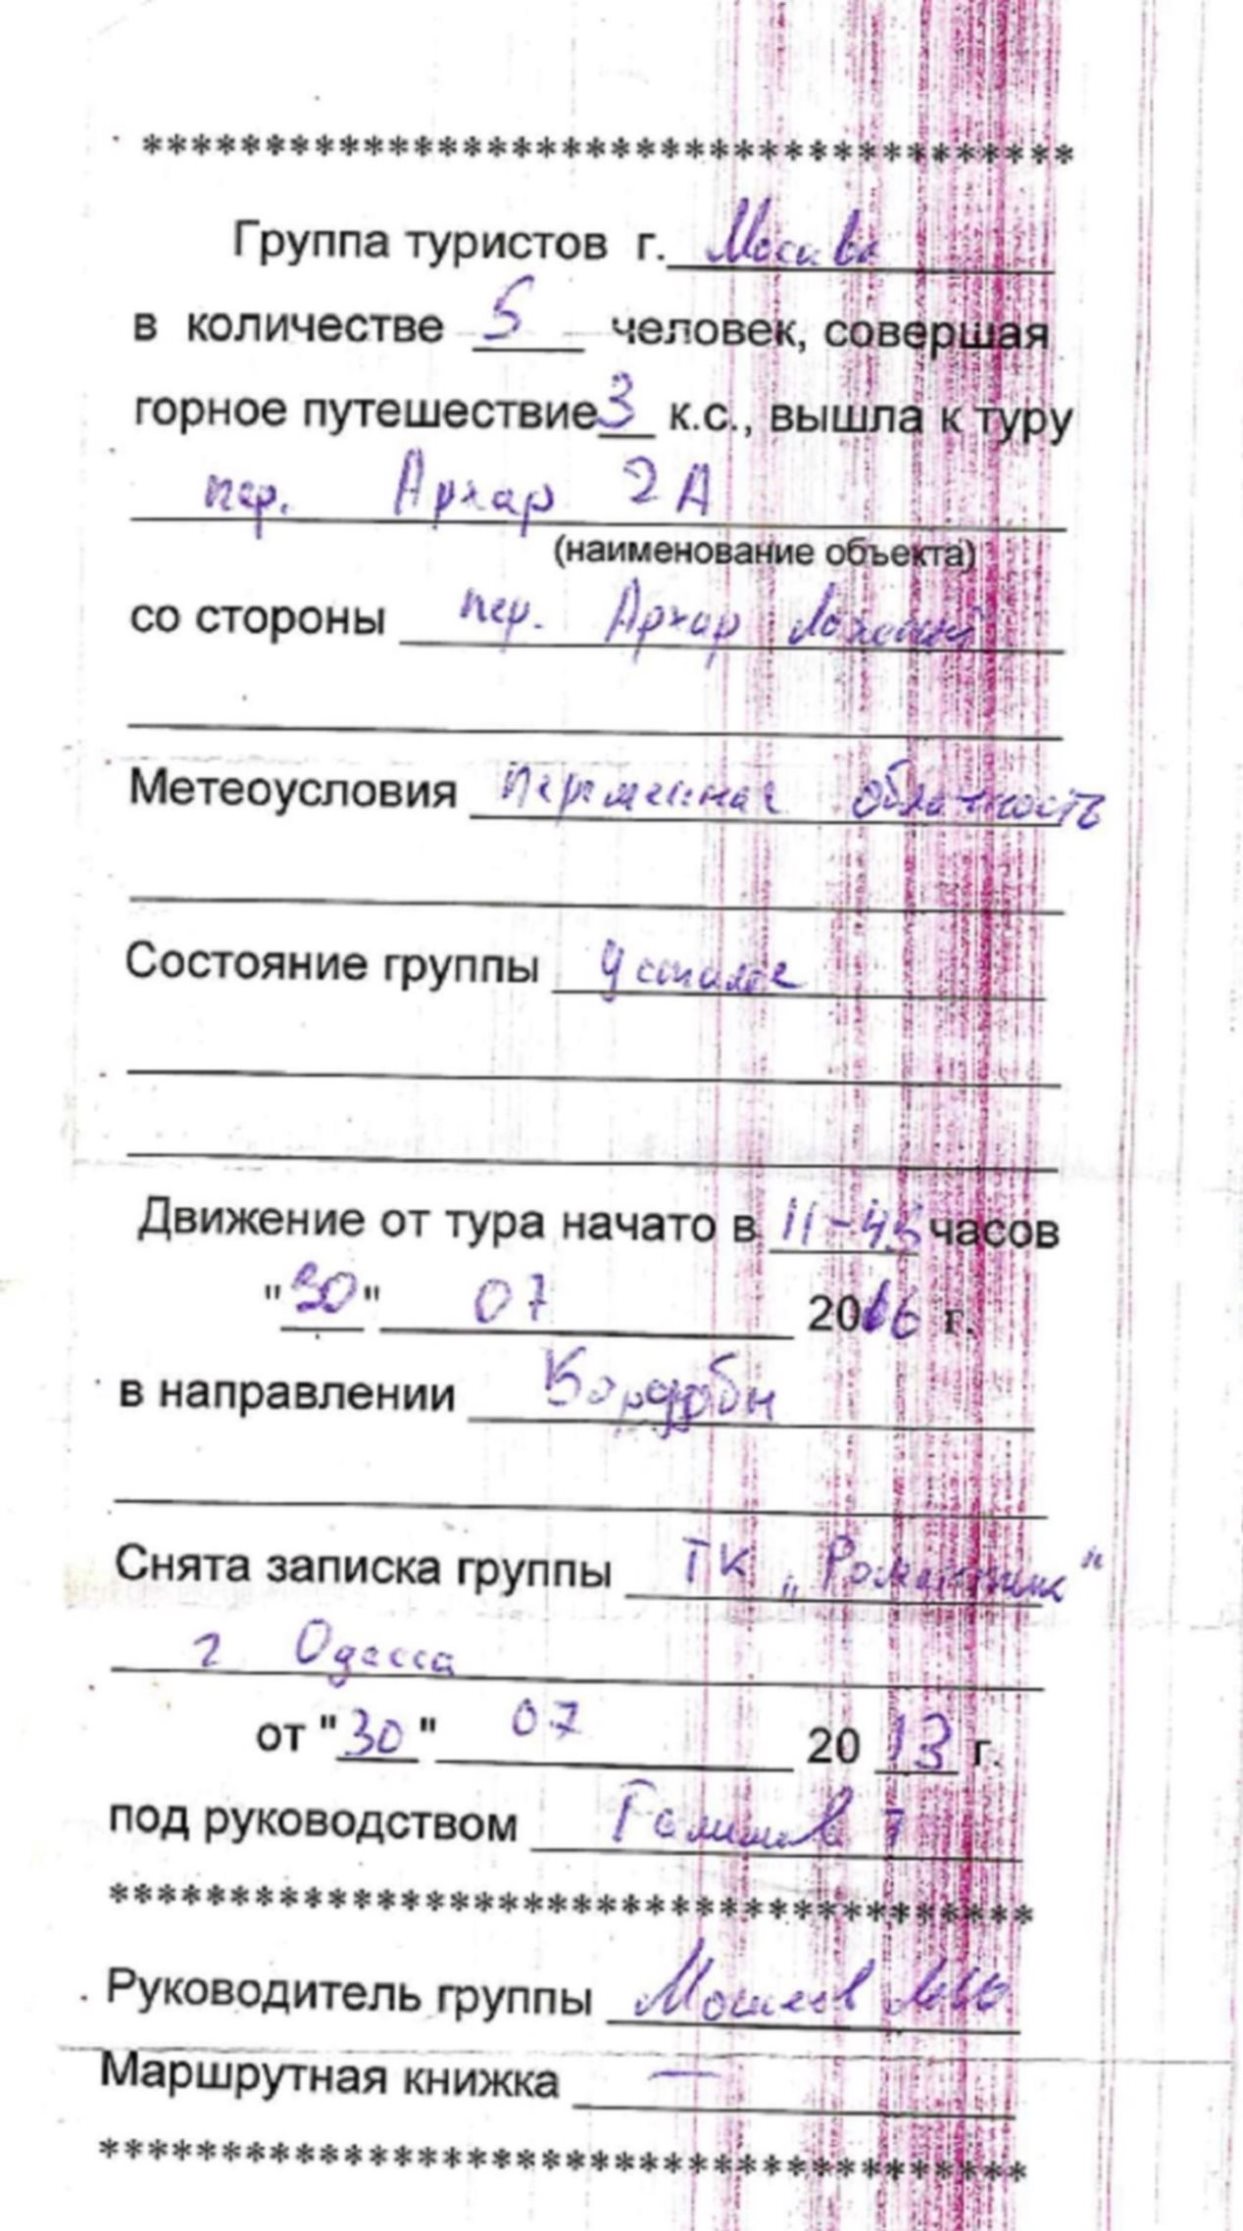 *************************************
Группа туристов г. Москва
в количестве 5 человек, совершая
горное путешествие 3 к.с., вышла к туру
пер. Архар 2А
(наименование объекта)
со стороны пер. Архар Ложный
Метеоусловия переменная облачность
Состояние группы усталое
Движение от тура начато в 11-45 часов
"30" 07 2016 г.
в направлении
Снята записка группы ТК „Романтик"
г Одесса
от "30" 07 20 13 г.
под руководством
*************************************
Руководитель группы
Маршрутная книжка —
*************************************